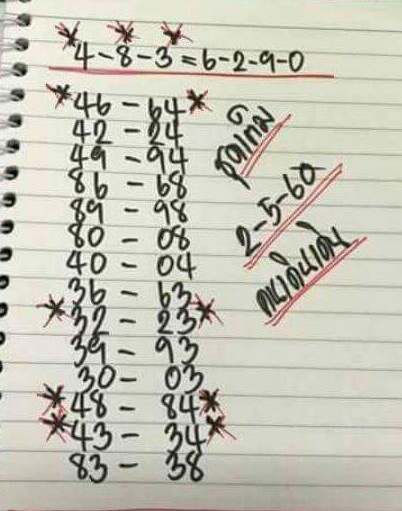 4-8-3=6-2-9-0
*46 - 64*
42 - 24
49 - 94
86 - 68
89 - 98
80 - 08
40 - 04
36 - 63
*32 - 23*
39 - 93
30 - 03
*48 - 84*
*43 - 34*
83 - 38
2-5-60
คนเดินเดิน